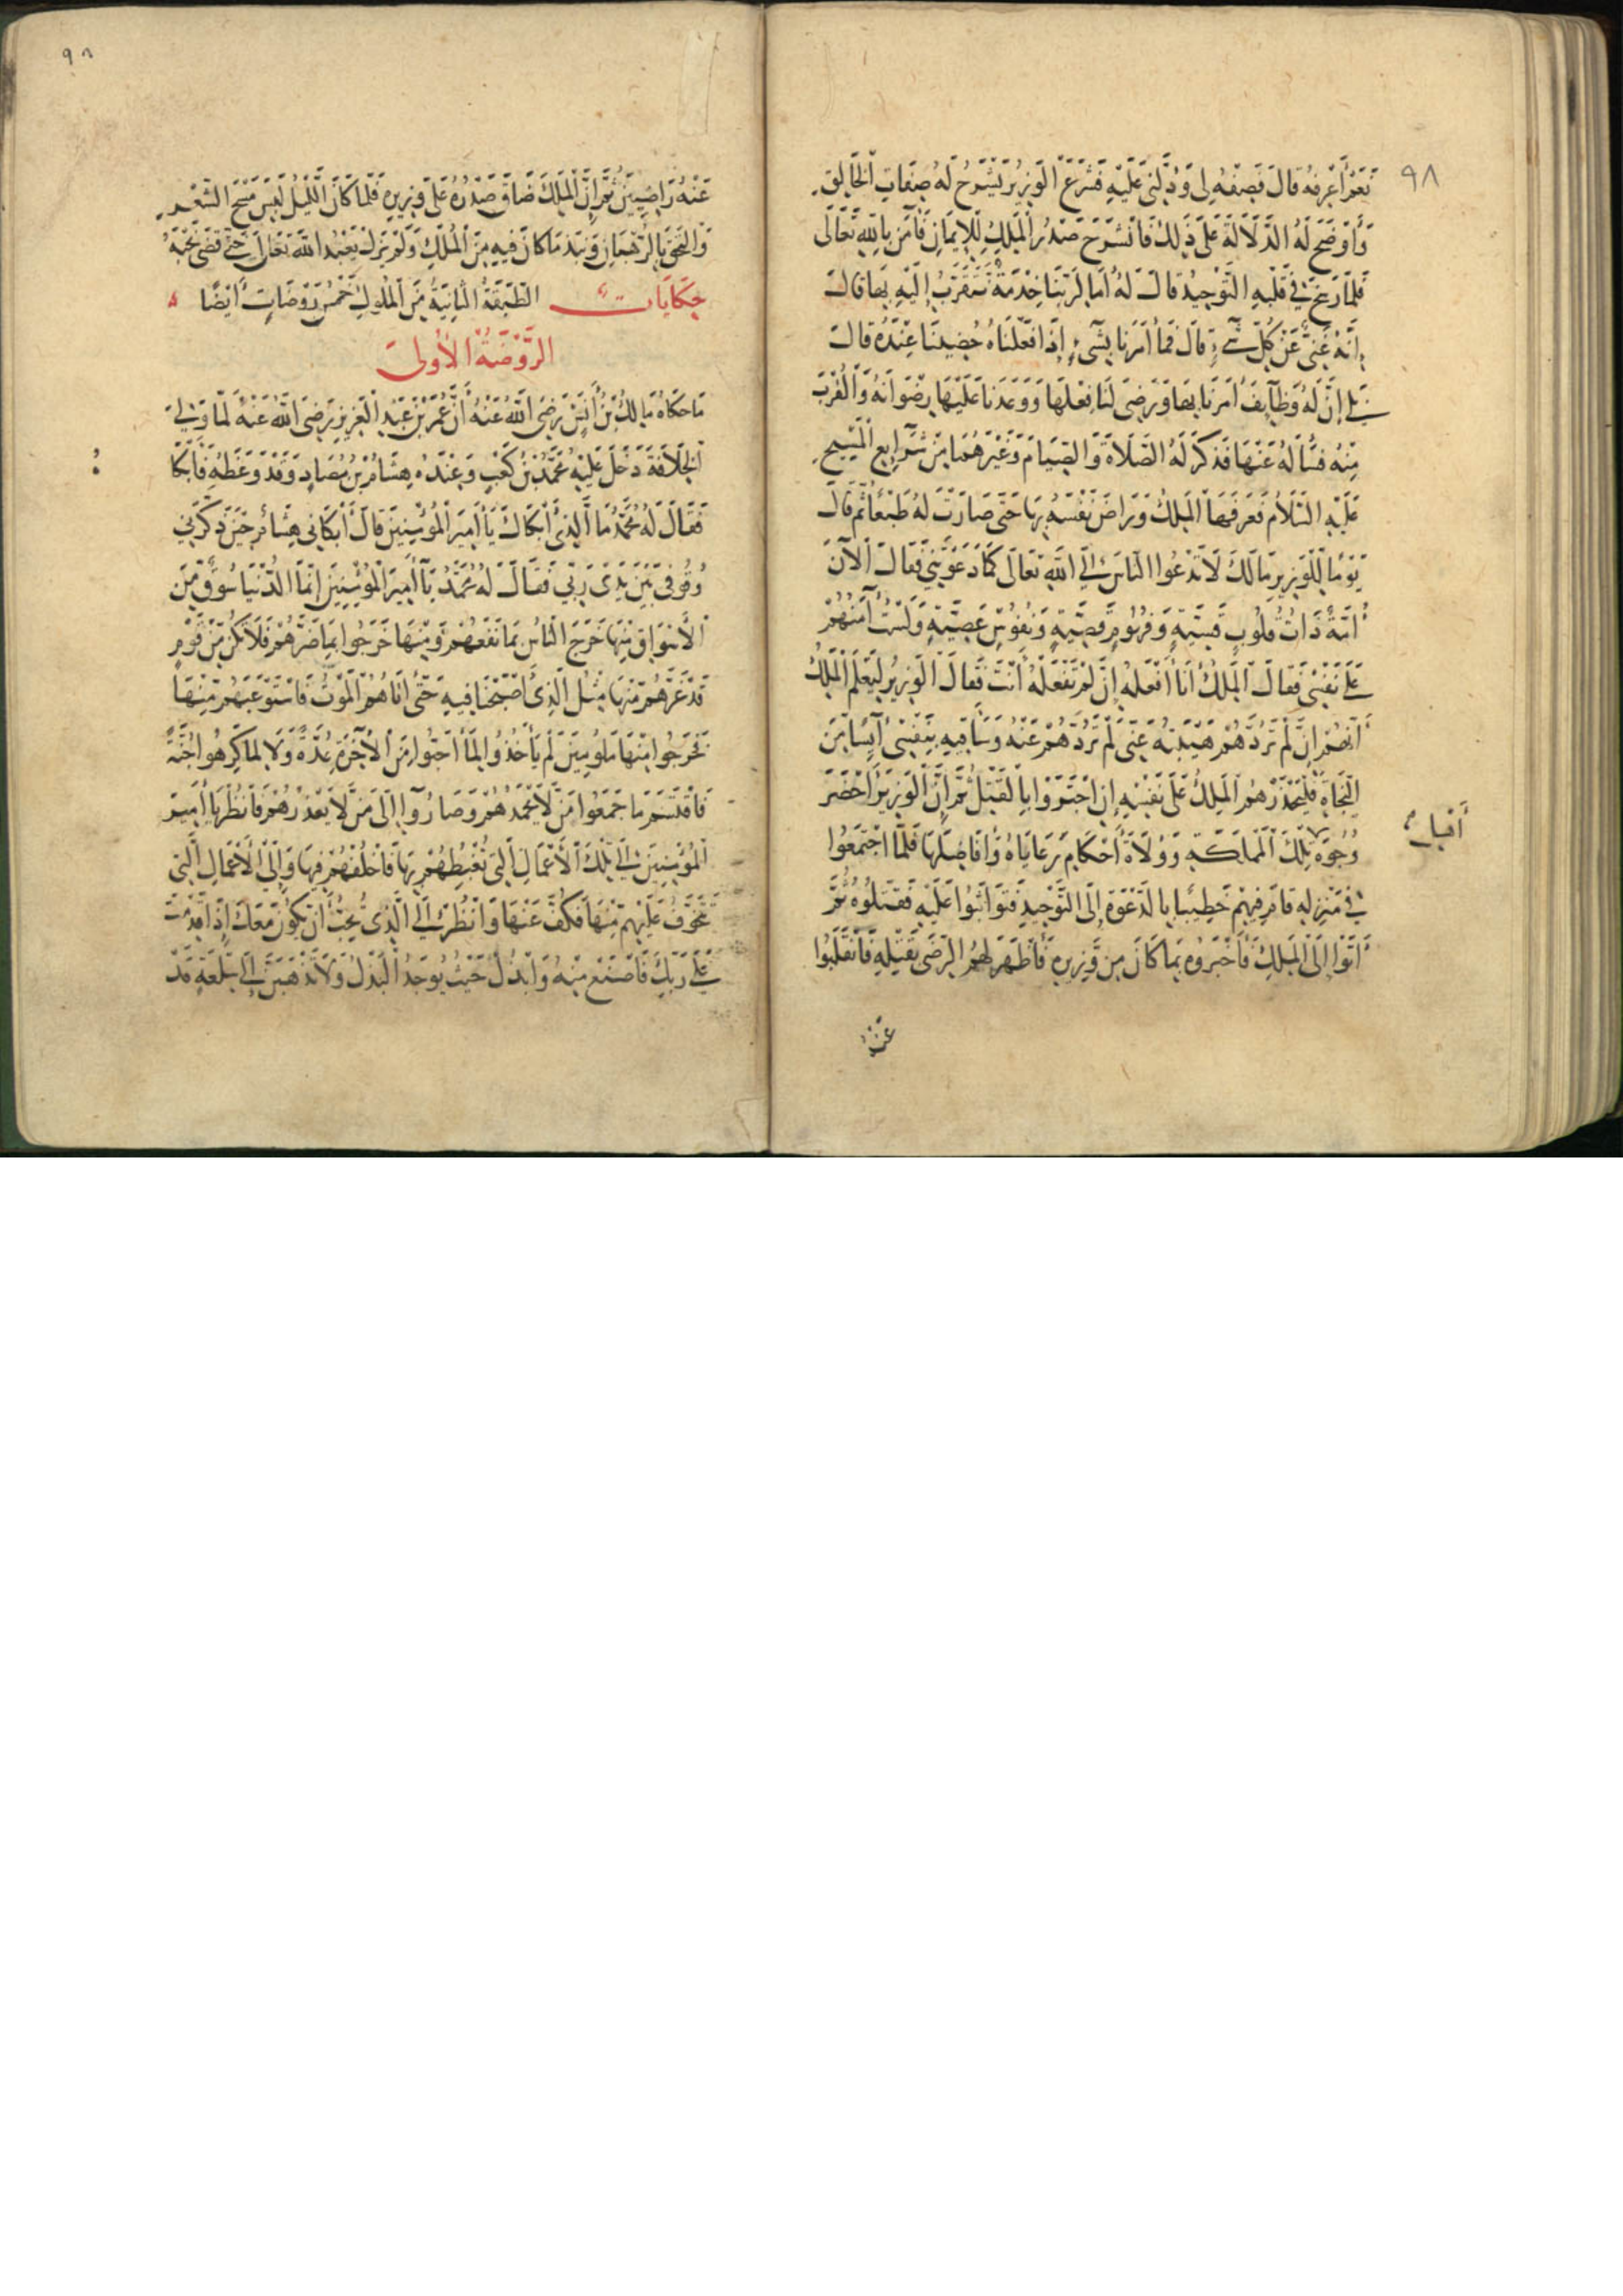 ٩٨
نَعَمْ أَعْرِفُهُ قَالَ فَصِفْهُ لِي وَدُلَّنِي عَلَيْهِ فَشَرَعَ الْوَزِيرُ يَشْرَحُ لَهُ صِفَاتِ الْخَالِقِ
وَأَوْضَحَ لَهُ الدَّلَالَةَ عَلَى ذَلِكَ فَانْشَرَحَ صَدْرُ الْمَلِكِ لِلْإِيمَانِ فَآمَنَ بِاللَّهِ تَعَالَى
فَلَمَّا رَسَخَ فِي قَلْبِهِ التَّوْحِيدُ قَالَ لَهُ أَمَا لِرَبِّنَا خِدْمَةٌ نَتَقَرَّبُ إِلَيْهِ بِهَا قَالَ
إِنَّهُ غَنِيٌّ عَنْ كُلِّ شَيْءٍ قَالَ فَمَا أَمَرَنَا بِشَيْءٍ إِذَا فَعَلْنَاهُ حُضِينَا عِنْدَهُ قَالَ
بَلَى إِنَّ لَهُ وَظَايِفَ أَمَرَنَا بِهَا وَرَضِيَ لَنَا فِعْلَهَا وَوَعَدَنَا عَلَيْهَا رِضْوَانَهُ وَالْقُرْبَ
مِنْهُ فَسَأَلَهُ عَنْهَا فَذَكَرَ لَهُ الصَّلَاةَ وَالصِّيَامَ وَغَيْرَهُمَا مِنْ شَرَايِعِ الْمَسِيحِ
عَلَيْهِ السَّلَامُ فَعَرَفَهَا الْمَلِكُ وَرَاضَ نَفْسَهُ بِهَا حَتَّى صَارَتْ لَهُ طَبْعًا ثُمَّ قَالَ
يَوْمًا لِلْوَزِيرِ مَا لَكَ لَا تَدْعُوا النَّاسَ إِلَى اللَّهِ تَعَالَى كَمَا دَعَوْتَنِي فَقَالَ الْآنَ
أُمَّةٌ ذَاتُ قُلُوبٍ قَسِيَّةٍ وَفُهُومٍ قَصِيَّةٍ وَنُفُوسٍ عَصِيَّةٍ وَلَسْتُ آمَنُهُمْ
عَلَى نَفْسِي فَقَالَ الْمَلِكُ أَنَا أَفْعَلُهُ إِنْ لَمْ تَفْعَلْهُ أَنْتَ فَقَالَ الْوَزِيرُ لِيَعْلَمِ الْمَلِكُ
أَنَّهُمْ إِنْ لَمْ تَرُدَّهُمْ هَيْبَتُهُ عَنِّي لَمْ تَرُدَّهُمْ عَنْهُ وَسَأَقِيهِ بِنَفْسِي آيِسًا مِنَ
النَّجَاةِ فَلْيَحْذَرْهُمُ الْمَلِكُ عَلَى نَفْسِهِ إِنِ اجْتَرَوْا بِالْقَتْلِ ثُمَّ إِنَّ الْوَزِيرَ أَحْضَرَ
وُجُوهَ تِلْكَ الْمَمْلَكَةِ وَوُلَاةَ أَحْكَامِ رَعَايَاهُ وَأَفَاضِلَهَا فَلَمَّا اجْتَمَعُوا
فِي مَنْزِلِهِ قَامَ فِيهِمْ خَطِيبًا بِالدَّعْوَةِ إِلَى التَّوْحِيدِ فَتَوَاثَبُوا عَلَيْهِ فَقَتَلُوهُ ثُمَّ
أَتَوْا إِلَى الْمَلِكِ فَأَخْبَرُوهُ بِمَا كَانَ مِنْ وَزِيرِهِ فَأَظْهَرَ لَهُمُ الرِّضَى بِقَتْلِهِ فَانْقَلَبُوا
عَنْهُ
عَنْهُ رَاضِيِينَ ثُمَّ إِنَّ الْمَلِكَ ضَاقَ صَدْرُهُ عَلَى وَزِيرِهِ فَلَمَّا كَانَ اللَّيْلُ لَبِسَ مِسْحَ الشَّعْرِ
وَالْتَحَقَ بِالرُّهْبَانِ وَنَبَذَ مَا كَانَ فِيهِ مِنَ الْمُلْكِ وَلَمْ يَزَلْ يَعْبُدُ اللَّهَ تَعَالَى حَتَّى قَضَى نَحْبَهُ
حِكَايَات الطَّبَقَةُ الثَّانِيَةُ مِنَ الْمُلُوكِ خَمْسُ رَوْضَاتٍ أَيْضًا
الرَّوْضَةُ الْأُولَى
مَا حَكَاهُ مَالِكُ بْنُ أَنَسٍ رَضِيَ اللَّهُ عَنْهُ أَنَّ عُمَرَ بْنَ عَبْدِ الْعَزِيزِ رَضِيَ اللَّهُ عَنْهُ لَمَّا وَلِيَ
الْخِلَافَةَ دَخَلَ عَلَيْهِ مُحَمَّدُ بْنُ كَعْبٍ وَعِنْدَهُ هِشَامُ بْنُ مُصَادٍ وَقَدْ وَعَظَهُ فَأَبْكَا
فَقَالَ لَهُ مُحَمَّدٌ مَا الَّذِي أَبْكَاكَ يَا أَمِيرَ الْمُؤْمِنِينَ قَالَ أَبْكَانِي هِشَامٌ حِينَ ذَكَّرَنِي
وُقُوفِي بَيْنَ يَدَيْ رَبِّي فَقَالَ لَهُ مُحَمَّدٌ يَا أَمِيرَ الْمُؤْمِنِينَ إِنَّمَا الدُّنْيَا سُوقٌ مِنَ
الْأَسْوَاقِ مِنْهَا خَرَجَ النَّاسُ بِمَا نَفَعَهُمْ وَمِنْهَا خَرَجُوا بِمَا ضَرَّهُمْ فَلَا تَكُنْ مِنْ قَوْمٍ
قَدْ غَرَّهُمْ مِنْهَا مِثْلُ الَّذِي أَصْبَحْنَا فِيهِ حَتَّى أَتَاهُمُ الْمَوْتُ فَاسْتَوْعَبَهُمْ مِنْهَا
فَخَرَجُوا مِنْهَا مَلُومِينَ لَمْ يَأْخُذُوا لِمَا أَحَبُّوا مِنَ الْآخِرَةِ عُدَّةً وَلَا لِمَا كَرِهُوا جُنَّةً
فَاقْتَسَمَ مَا جَمَعُوا مَنْ لَا يَحْمَدُهُمْ وَصَارُوا إِلَى مَنْ لَا يَعْذِرُهُمْ فَانْظُرْ يَا أَمِيرَ
الْمُؤْمِنِينَ إِلَى تِلْكَ الْأَعْمَالِ الَّتِي تُغْبِطُهُمْ بِهَا فَاخْلُفْهُمْ فِيهَا وَإِلَى الْأَعْمَالِ الَّتِي
تَخَوَّفُ عَلَيْهِمْ مِنْهَا فَكُفَّ عَنْهَا وَانْظُرْ إِلَى الَّذِي تُحِبُّ أَنْ يَكُونَ مَعَكَ إِذَا قَدِمْتَ
عَلَى رَبِّكَ فَاصْنَعْ مِنْهُ وَابْذُلْ حَيْثُ يُوجَدُ الْبَدَلُ وَلَا تَذْهَبَنَّ إِلَى سِلْعَةٍ قَدْ